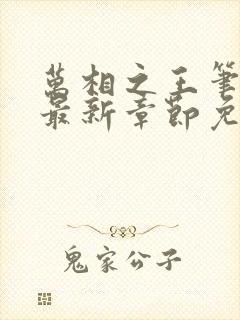 萬相之王筆
最新章節免
鬼家公子